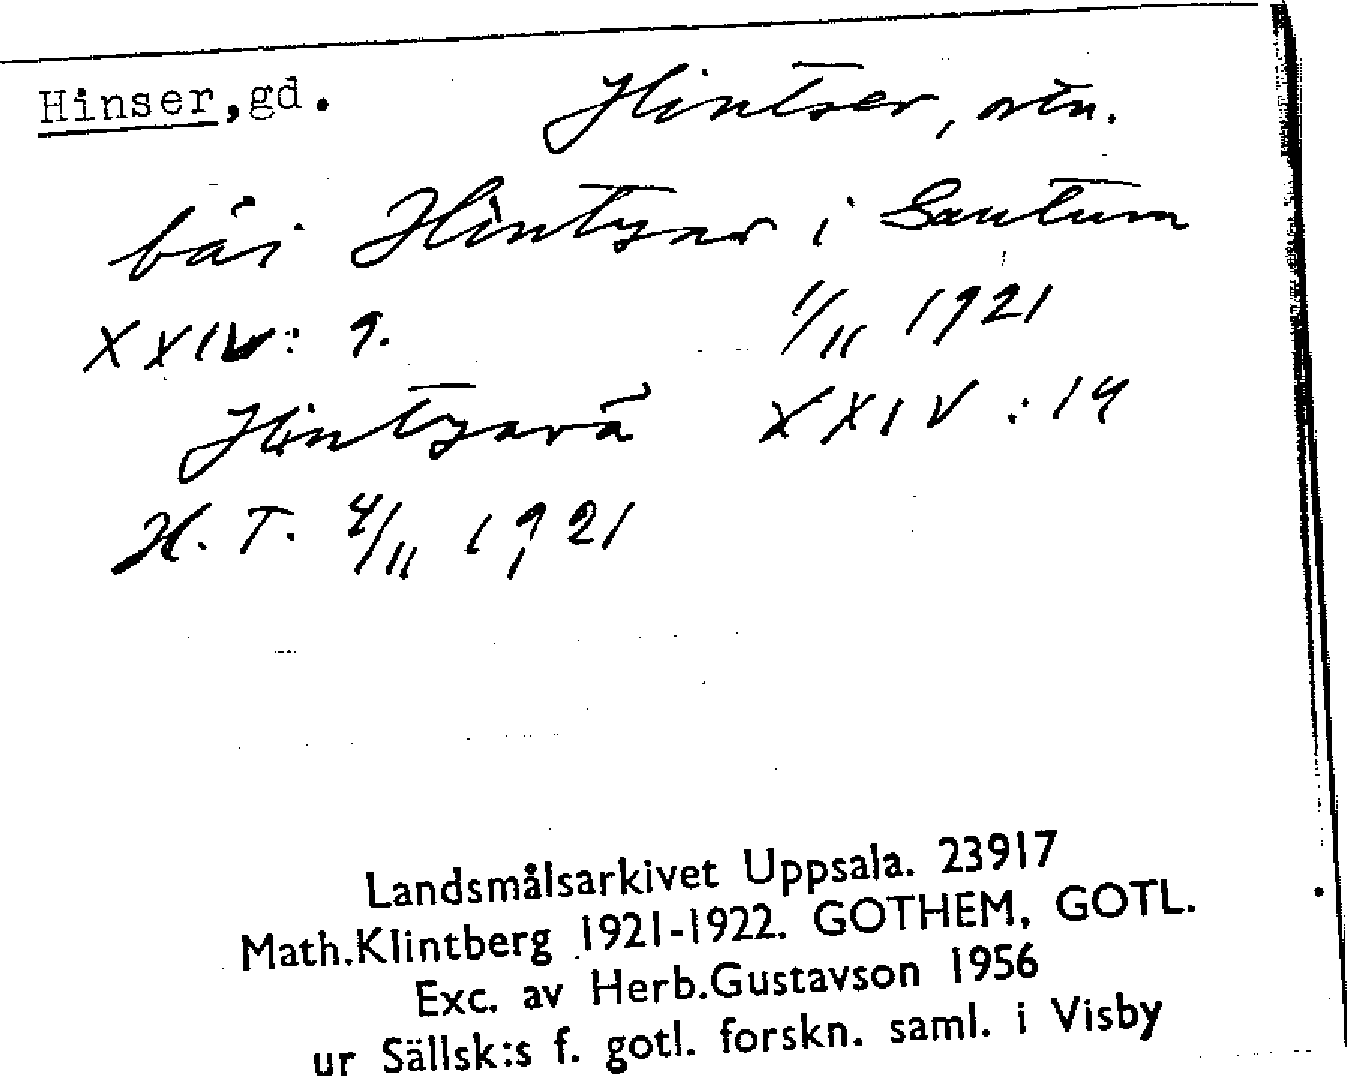 Hinser,gd. Hintser, ortn.
bäi Hintsar i Santum
XXIV: 9. 1/11 1921
Hintsarä XXIV: 14
H. T. 4/11 1921
Landsmålsarkivet Uppsala. 23917
Math.Klintberg 1921-1922. GOTHEM, GOTL.
Exc. av Herb.Gustavson 1956
ur Sällsk:s f. gotl. forskn. saml. i Visby